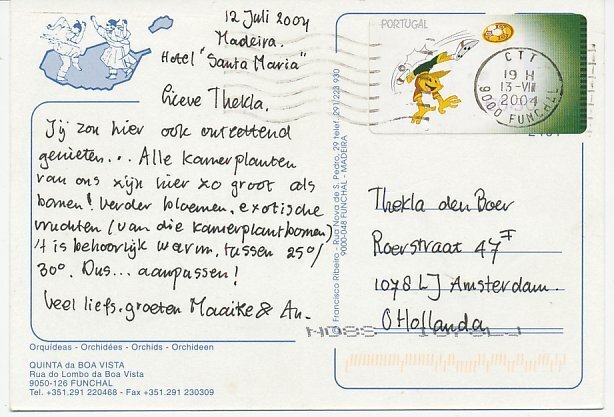 12 Juli 2004
Madeira.
Hotel "Santa Maria"
Lieve Thekla,
Jij zou hier ook ontzettend
genieten... Alle kamerplanten
van ons zijn hier zo groot als
bomen! Verder bloemen, exotische
vruchten (van die kamerplantbomen)
't is behoorlijk warm, tussen 25°/
30°. Dus... aanpassen!
Veel liefs, groeten Maaike & An.
Orquídeas - Orchidées - Orchids - Orchideen
QUINTA da BOA VISTA
Rua do Lombo da Boa Vista
9050-126 FUNCHAL
Tel. +351.291 220468 - Fax +351.291 230309
Francisco Ribeiro - Rua Nova de S. Pedro, 29 telef. 291/223 930
9000-048 FUNCHAL - MADEIRA
PORTUGAL
CTT
19 H
13-VII
2004
9000 FUNCHAL
Thekla den Boer
Roerstraat 47 I
1078 LJ Amsterdam.
Hollanda